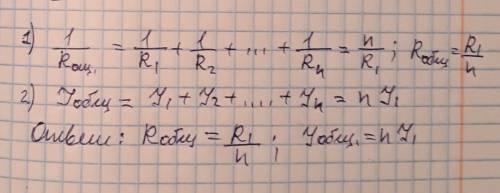 1) 1/Rощ. = 1/R₁ + 1/R₂ + ... + 1/Rₙ = n/R₁; Rобщ = R₁/n
2) Jобщ = J₁ + J₂ + .... + Jₙ = n J₁
Ответ: Rобщ = R₁/n; Jобщ. = n J₁